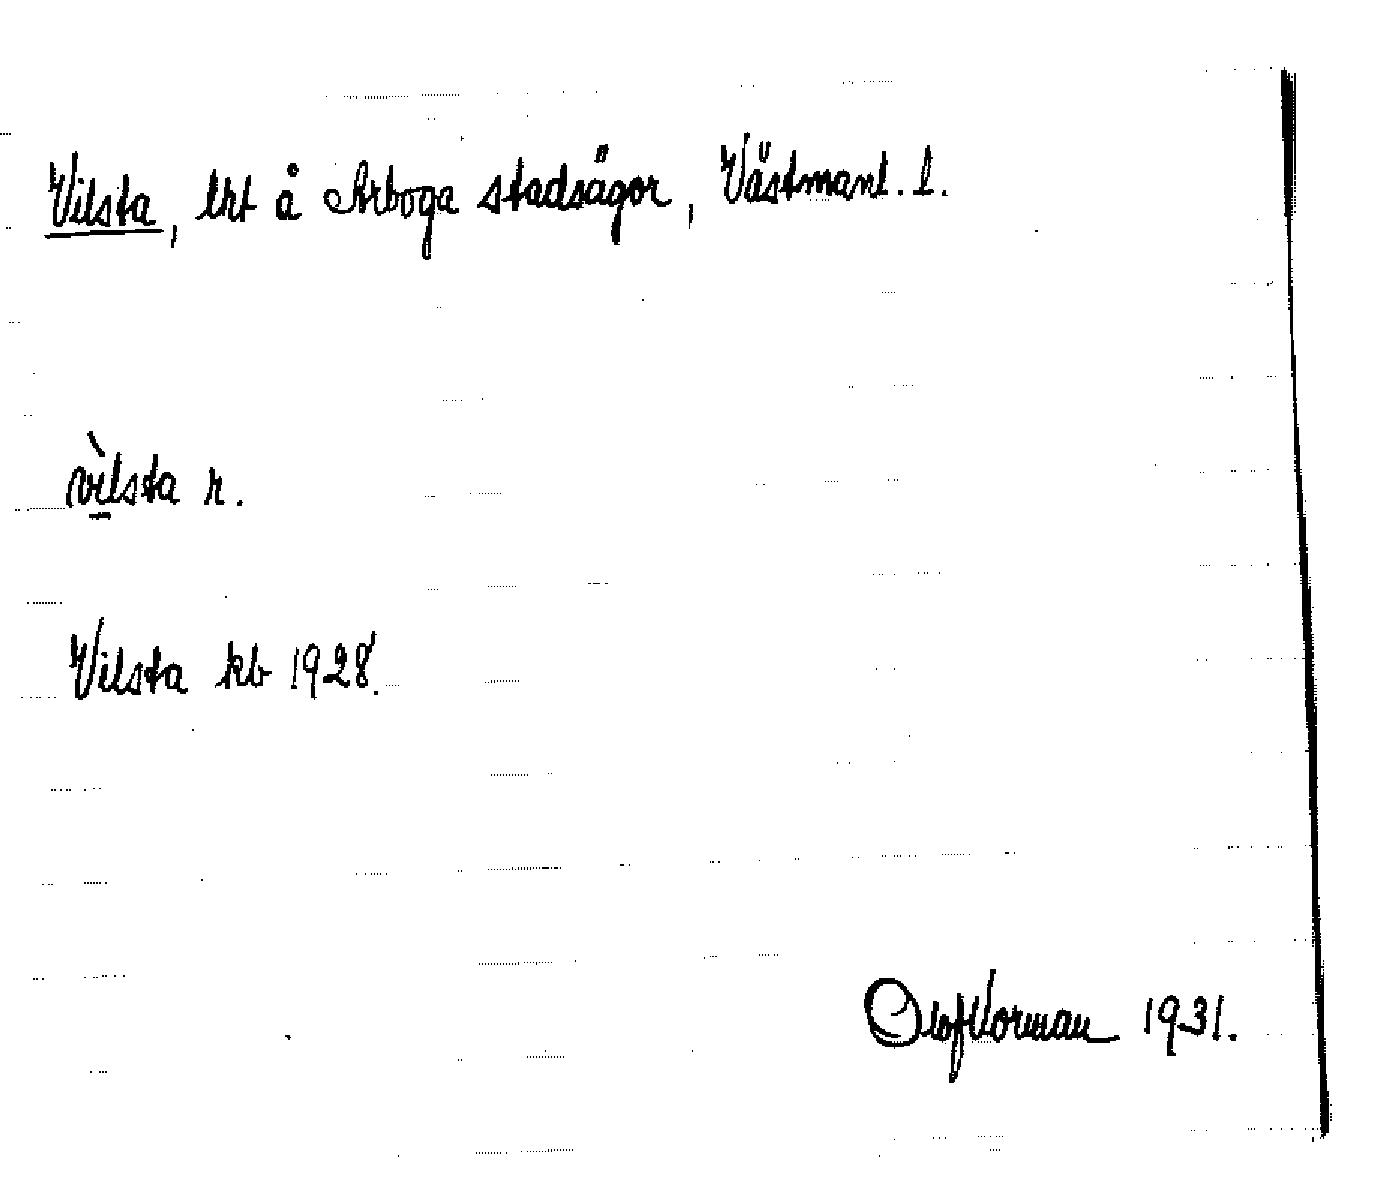 Vilsta, lht å Arboga stadsägor, Västmanl. l.
vìlsta r.
Vilsta kb 1928.
Olof Vorman 1931.